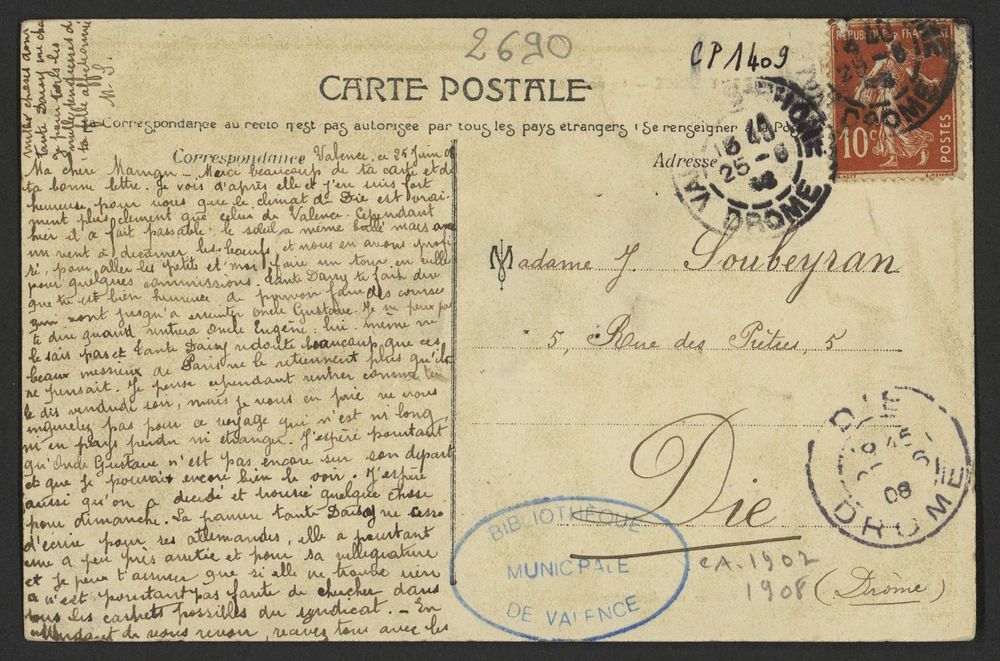 2690
CP1409
CARTE POSTALE
La Correspondance au recto n'est pas autorisée par tous les pays étrangers (Se renseigner à la Poste
Correspondance
Adresse
Valence, ce 25 Juin 08
Ma chère Maman — Merci beaucoup de ta carte et de
ta bonne lettre. Je vois d'après elle et j'en suis fort
heureuse, pour vous que le climat de Die est vrai-
ment plus clément que celui de Valence. Cependant
hier il a fait passable, le soleil a même brillé mais avec
un vent à décorner les boeufs, et nous en avons profi
té, pour aller les petits et moi, faire un tour en ville
pour quelques commissions. Tante Daisy te fait dire
que tu es bien heureuse de pouvoir faire des courses
qui vont jusqu'à éreinter Oncle Gustave. Je ne peux pas
te dire quand rentrera Oncle Eugène: lui-même ne
le sais pas et Tante Daisy redoute beaucoup que ces
beaux messieux de Paris ne le retiennent plus qu'il
ne pensait. Je pense cependant rentrer comme tu
le dis vendredi soir, mais je vous en prie ne vous
inquiétez pas pour ce voyage qui n'est ni long
ni en pays perdu ni étranger. J'espère pourtant
qu'Oncle Gustave n'est pas encore sur son départ
et que je pourrais encore bien le voir. J'espère
aussi qu'on a décidé et trouvé quelque chose
pour dimanche. La pauvre tante Daisy ne cesse
d'écrire pour ses allemandes, elle a pourtant
une à peu près arrêtée et pour sa villégiature
et je peux t'assurer que si elle ne trouve rien
ce n'est pourtant pas faute de chercher dans
tous les carnets possibles du syndicat. — En
attendant de vous revoir, recevez tous avec les
milles choses dont
tante Daisy me charge
pour tous les
mille tendresses de
ta fille affectionnée
M. S.
Madame J. Soubeyran
5, Rue des Prêtres, 5
Die
(Drôme)
RÉPUBLIQUE FRANÇAISE
10c
POSTES
DROME
25 - 6
DROME
DIE
08
DROME
BIBLIOTHÈQUE
MUNICIPALE
DE VALENCE
CA. 1902
1908